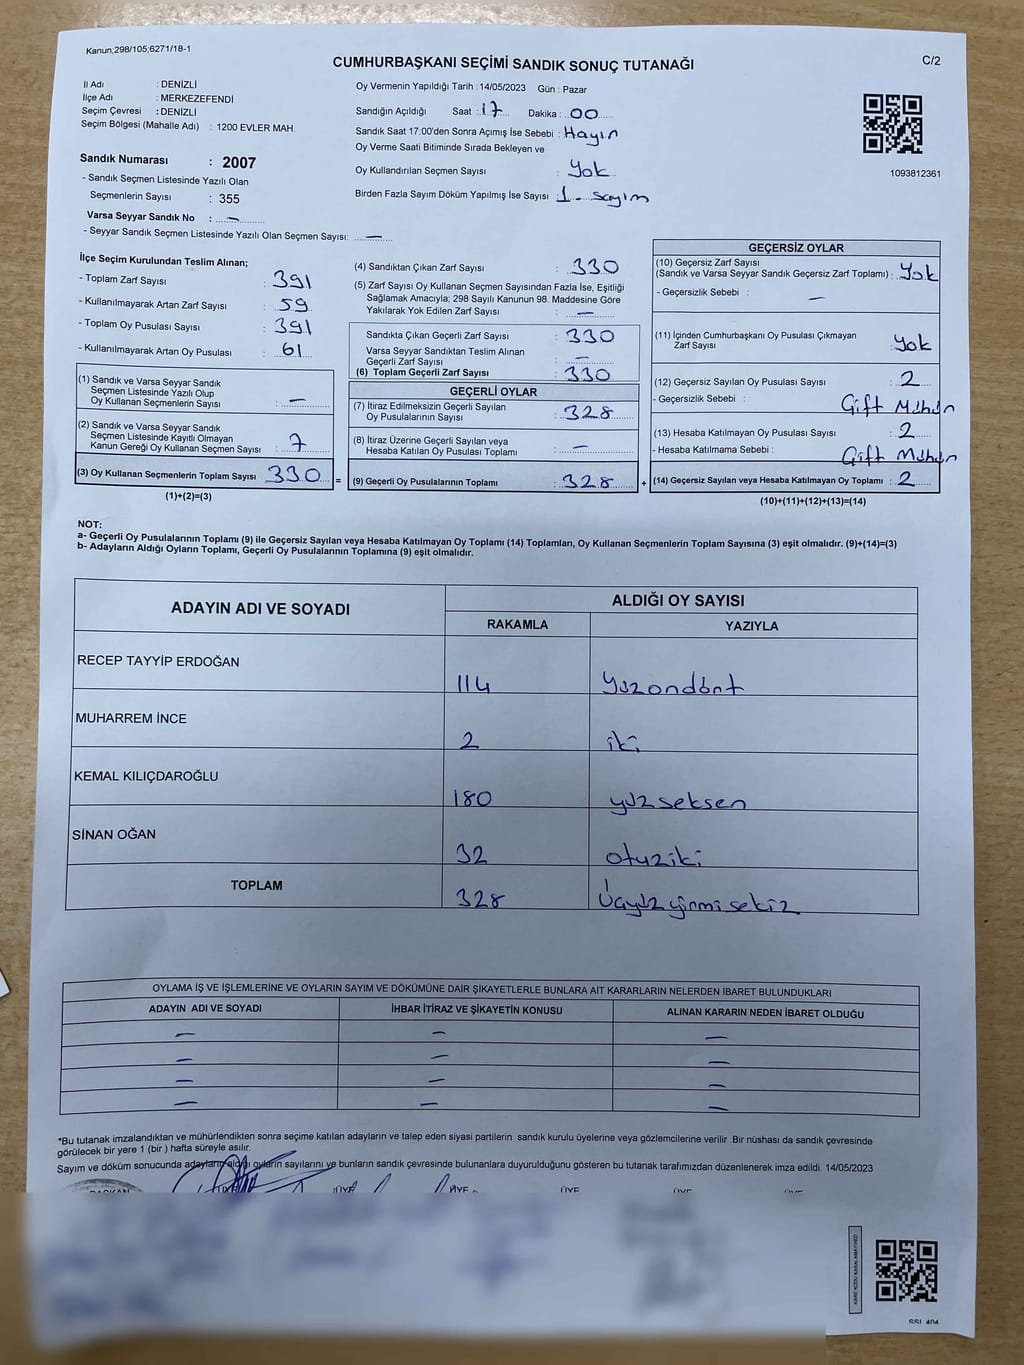 Kanun;298/105,6271/18-1
CUMHURBAŞKANI SEÇİMİ SANDIK SONUÇ TUTANAĞI
C/2
İl Adı : DENİZLİ
İlçe Adı : MERKEZEFENDİ
Seçim Çevresi : DENİZLİ
Seçim Bölgesi (Mahalle Adı) : 1200 EVLER MAH.
Sandık Numarası : 2007
- Sandık Seçmen Listesinde Yazılı Olan
Seçmenlerin Sayısı : 355
Varsa Seyyar Sandık No : —
- Seyyar Sandık Seçmen Listesinde Yazılı Olan Seçmen Sayısı: —
Oy Vermenin Yapıldığı Tarih : 14/05/2023 Gün : Pazar
Sandığın Açıldığı Saat : 17 Dakika : 00
Sandık Saat 17:00'den Sonra Açımış İse Sebebi : Hayır
Oy Verme Saati Bitiminde Sırada Bekleyen ve
Oy Kullandırılan Seçmen Sayısı : Yok
Birden Fazla Sayım Döküm Yapılmış İse Sayısı : 1. sayım
1093812361
İlçe Seçim Kurulundan Teslim Alınan;
- Toplam Zarf Sayısı : 391
- Kullanılmayarak Artan Zarf Sayısı : 59
- Toplam Oy Pusulası Sayısı : 391
- Kullanılmayarak Artan Oy Pusulası : 61
(1) Sandık ve Varsa Seyyar Sandık
Seçmen Listesinde Yazılı Olup
Oy Kullanan Seçmenlerin Sayısı : —
(2) Sandık ve Varsa Seyyar Sandık
Seçmen Listesinde Kayıtlı Olmayan
Kanun Gereği Oy Kullanan Seçmen Sayısı : 7
(3) Oy Kullanan Seçmenlerin Toplam Sayısı : 330 =
(1)+(2)=(3)
(4) Sandıktan Çıkan Zarf Sayısı : 330
(5) Zarf Sayısı Oy Kullanan Seçmen Sayısından Fazla İse, Eşitliği
Sağlamak Amacıyla; 298 Sayılı Kanunun 98. Maddesine Göre
Yakılarak Yok Edilen Zarf Sayısı : —
Sandıkta Çıkan Geçerli Zarf Sayısı : 330
Varsa Seyyar Sandıktan Teslim Alınan
Geçerli Zarf Sayısı : —
(6) Toplam Geçerli Zarf Sayısı : 330
GEÇERLİ OYLAR
(7) İtiraz Edilmeksizin Geçerli Sayılan
Oy Pusulalarının Sayısı : 328
(8) İtiraz Üzerine Geçerli Sayılan veya
Hesaba Katılan Oy Pusulası Toplamı : —
(9) Geçerli Oy Pusulalarının Toplamı : 328 +
GEÇERSİZ OYLAR
(10) Geçersiz Zarf Sayısı
(Sandık ve Varsa Seyyar Sandık Geçersiz Zarf Toplamı) : Yok
- Geçersizlik Sebebi : —
(11) İçinden Cumhurbaşkanı Oy Pusulası Çıkmayan
Zarf Sayısı : Yok
(12) Geçersiz Sayılan Oy Pusulası Sayısı : 2
- Geçersizlik Sebebi : Çift Mühür
(13) Hesaba Katılmayan Oy Pusulası Sayısı : 2
- Hesaba Katılmama Sebebi : Çift Mühür
(14) Geçersiz Sayılan veya Hesaba Katılmayan Oy Toplamı : 2
(10)+(11)+(12)+(13)=(14)
NOT:
a- Geçerli Oy Pusulalarının Toplamı (9) ile Geçersiz Sayılan veya Hesaba Katılmayan Oy Toplamı (14) Toplamları, Oy Kullanan Seçmenlerin Toplam Sayısına (3) eşit olmalıdır. (9)+(14)=(3)
b- Adayların Aldığı Oyların Toplamı, Geçerli Oy Pusulalarının Toplamına (9) eşit olmalıdır.
ADAYIN ADI VE SOYADI
ALDIĞI OY SAYISI
RAKAMLA YAZIYLA
RECEP TAYYİP ERDOĞAN 114 Yüzondört
MUHARREM İNCE 2 iki
KEMAL KILIÇDAROĞLU 180 yüzseksen
SİNAN OĞAN 32 otuziki
TOPLAM 328 Üçyüzyirmisekiz
OYLAMA İŞ VE İŞLEMLERİNE VE OYLARIN SAYIM VE DÖKÜMÜNE DAİR ŞİKAYETLERLE BUNLARA AİT KARARLARIN NELERDEN İBARET BULUNDUKLARI
ADAYIN ADI VE SOYADI İHBAR İTİRAZ VE ŞİKAYETİN KONUSU ALINAN KARARIN NEDEN İBARET OLDUĞU
— — —
— — —
— — —
— — —
*Bu tutanak imzalandıktan ve mühürlendikten sonra seçime katılan adayların ve talep eden siyasi partilerin sandık kurulu üyelerine veya gözlemcilerine verilir .Bir nüshası da sandık çevresinde
görülecek bir yere 1 (bir ) hafta süreyle asılır.
Sayım ve döküm sonucunda adayların aldığı oyların sayılarını ve bunların sandık çevresinde bulunanlara duyurulduğunu gösteren bu tutanak tarafımızdan düzenlenerek imza edildi. 14/05/2023
BAŞKAN ÜYE ÜYE ÜYE ÜYE ÜYE ÜYE
KARE KODU KARALAMAYINIZ!